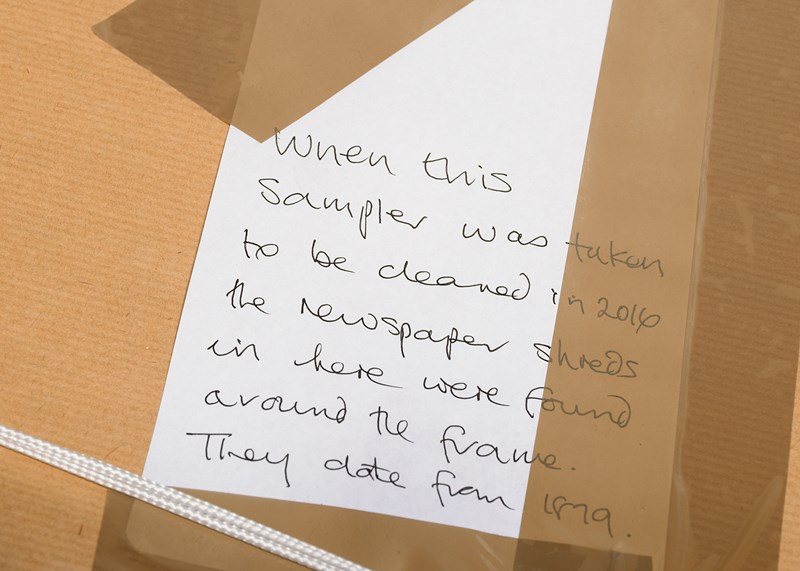 When this
sampler was taken
to be cleaned in 2016
the newspaper shreds
in here were found
around the frame.
They date from 1879.